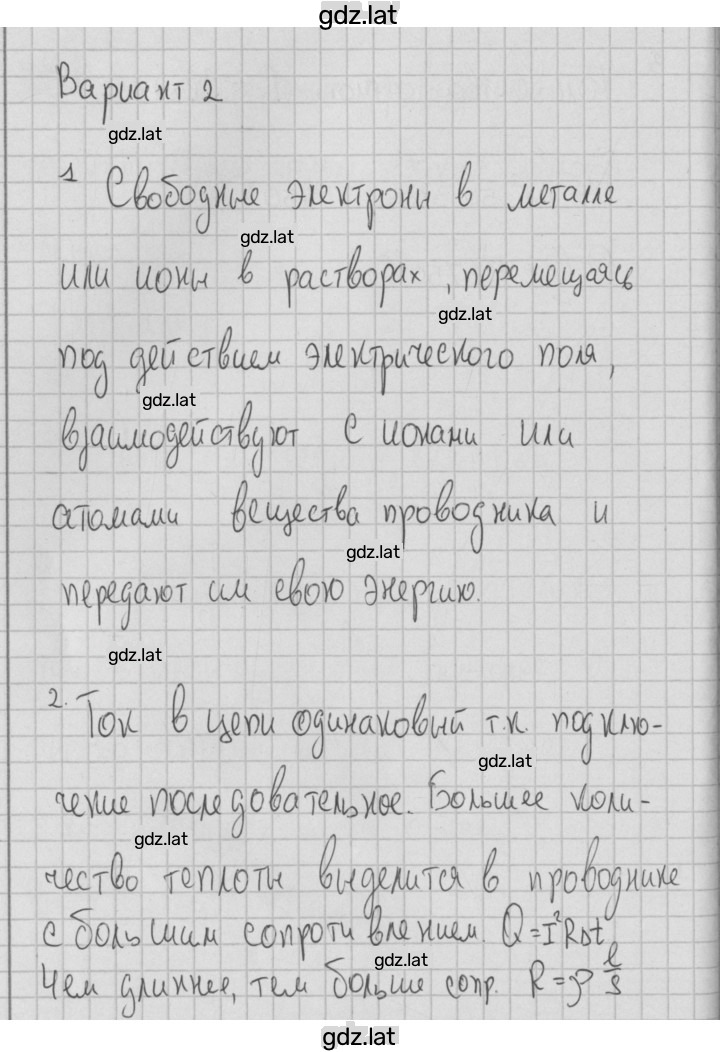 gdz.lat
Вариант 2
gdz.lat
1 Свободные электроны в металле
gdz.lat
или ионы в растворах, перемещаясь
gdz.lat
под действием электрического поля,
gdz.lat
взаимодействуют с ионами или
атомами вещества проводника и
gdz.lat
передают им свою энергию.
gdz.lat
2. Ток в цепи одинаковый т.к. подклю-
gdz.lat
чение последовательное. Большее коли-
gdz.lat
чество теплоты выделится в проводнике
с большим сопротивлением. Q=I²RΔt
gdz.lat
Чем длиннее, тем больше сопр. R=ρ l/S
gdz.lat